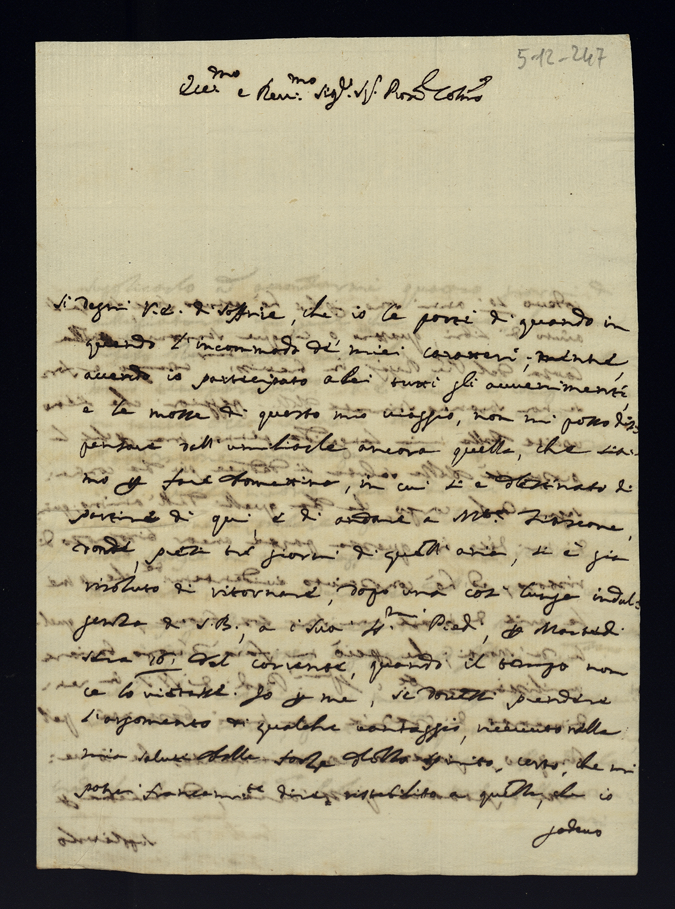 5-12-247
Ecc.mo e Rev.mo Sig.r Sig.r Pron. Colmo
Si degni V.E. di soffrire, che io le porti di quando in
quando l'incommodo de' miei caratteri, mentre,
avendo io partecipato a lei tutti gli avvenimenti,
e le mosse di questo mio viaggio, non mi posso dis-
pensare dall'umiliarle ancora quella, che
mo p fare domattina, in cui si è destinato di
partire di qui, e di andare a M.te Fiascone,
donde, presi tre giorni di quell'aria, si è già
risoluto di ritornare, dopo una così lunga indul-
genza di S.B., a i suoi SS.mi Piedi, p Martedì
sera 16, del corrente, quando il tempo non
ce lo vietasse. Io p me, se dovessi prendere
l'argomento di qualche vantaggio, ricevuto nella
mia salute dalla forza dello spirito, certo, che mi
potrei francam.te dire ristabilito a quella, che io
godevo